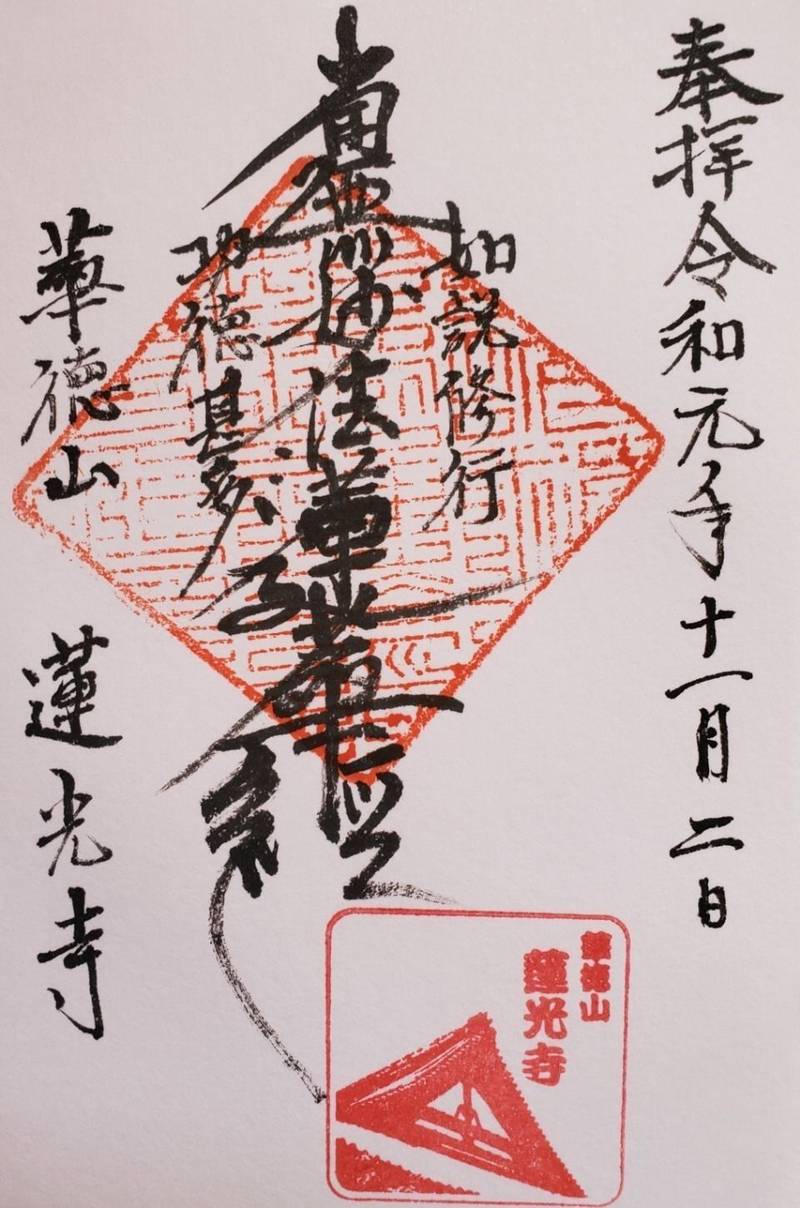 奉拝 令和元年十一月二日
如説修行
南無妙法蓮華経
功徳甚多
華徳山 蓮光寺
華徳山
蓮光寺